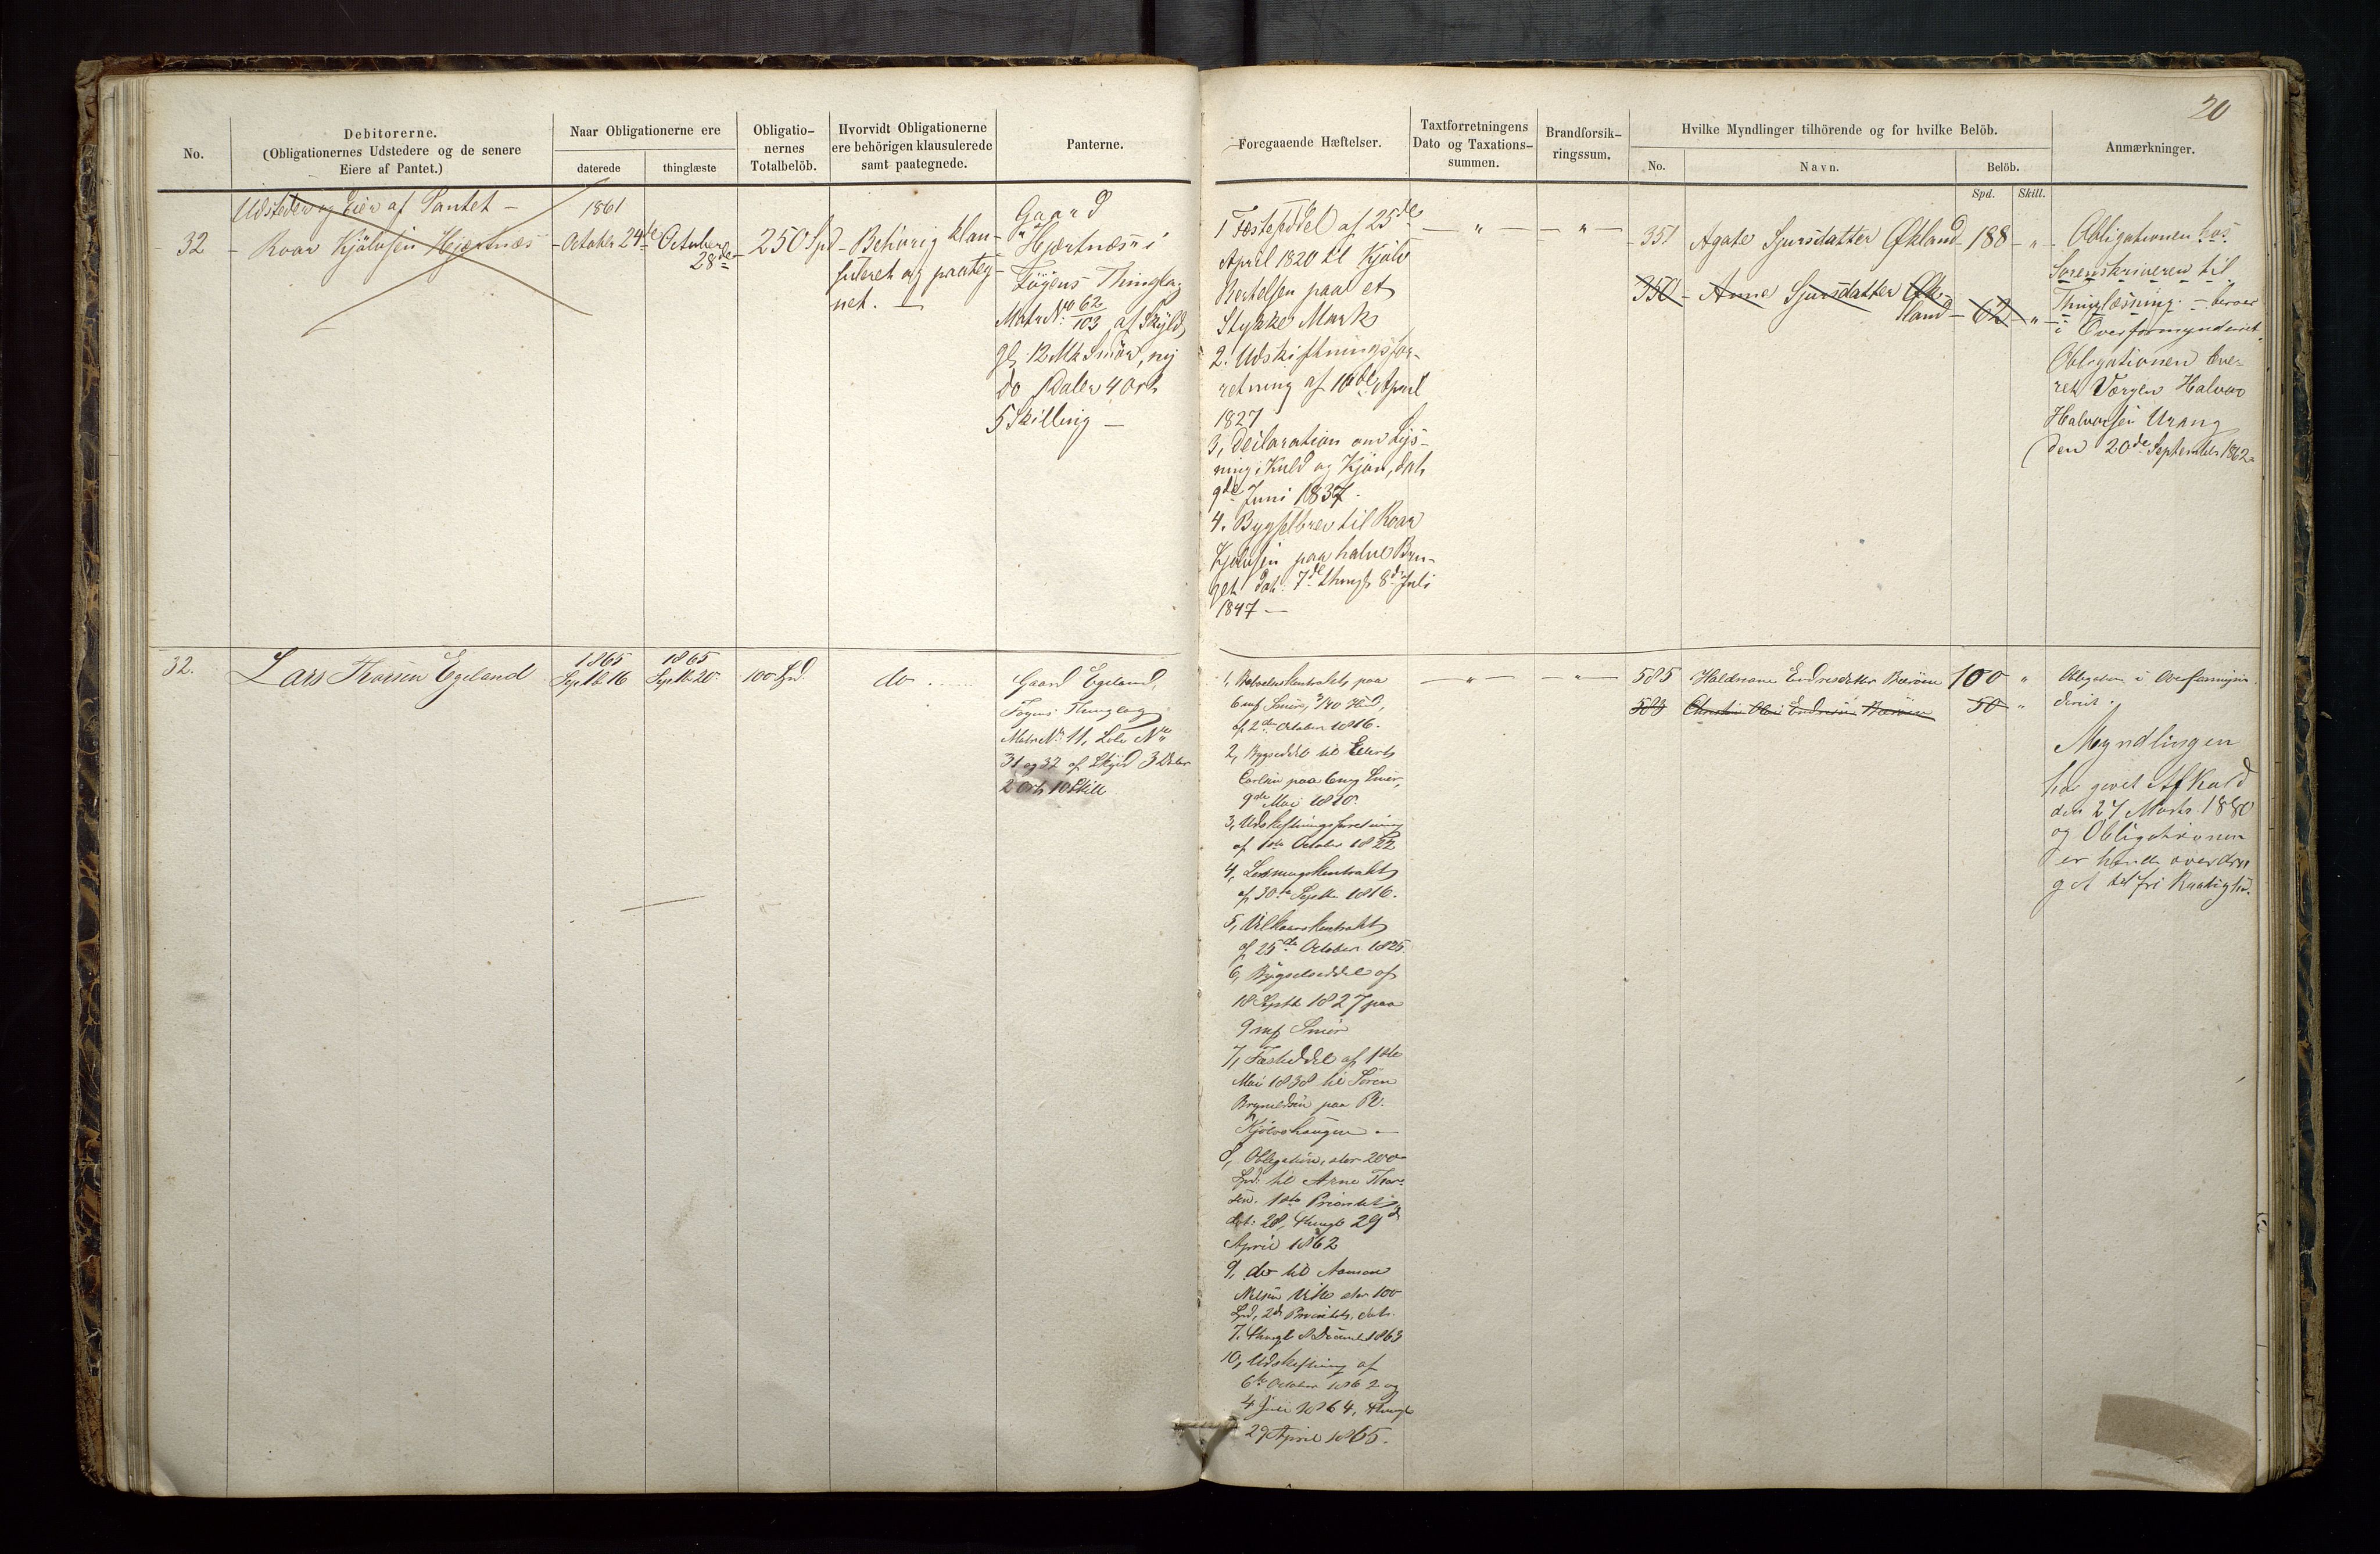 20
No.
Debitorerne.
(Obligationernes Udstedere og de senere
Eiere af Pantet.)
Naar Obligationerne ere
daterede
thinglæste
Obligatio-
nernes
Totalbelöb.
Hvorvidt Obligationerne
ere behörigen klausulerede
samt paategnede.
Panterne.
Foregaaende Hæftelser.
Taxtforretningens
Dato og Taxations-
summen.
Brandforsik-
ringssum.
Hvilke Myndlinger tilhörende og for hvilke Belöb.
No.
Navn.
Belöb.
Spd.
Skill.
Anmærkninger.
32
Udsteder og Eier af Pantet —
Roar Kjölvsen Hjertnæs
1861
October 24de
October
28de
250 Spd
Behörig klau-
suleret og paateg-
net. —
Gaard
"Hjertnæs" i
Föyens Thinglag
Matr No 62/103 af Skyld,
gl. 12 Mk Smör, ny
do 1 Daler 4 Ort
5 Skilling —
1 Festeseddel af 25de
April 1820 til Kjölv
Bertelsen paa et
Stykke Mark
2. Udskiftningsfor-
retning af 10de April
1827
3, Declaration om Lys-
ning i Kuld og Kjön, dat.
9de Juni 1837.
4. Bygselbrev til Roar
Kjölvsen paa halve Bru-
get dat. 7de thingl. 8de Juli
1847 —
— " —
— " —
351 Agate Sjursdatter Økland 188 "
350 Anne Sjursdatter Øk-
land 62 "
Obligationen hos
Sorenskriveren til
Thinglæsning. — beroer
i Overformynderiet.
Obligationen leve-
ret Værgen Halvor
Halvorsen Urang
den 20de September 1862.
32.
Lars Thorsen Egeland
1865
Septb 16
1865
Septb 20
100 Spd.
do ......
Gaard Egeland,
Föyens Thinglag
Matr No 11, Löbe No
31 og 32 af Skyld 3 Daler
2 Ort 10 Skill
1,
paa
6 mf Smör,
af 2den October 1816.
2, Bygseseddel til
paa 6 mf Smör,
9de Mai 1820.
3, Udskiftningsforretning
af 1ste October 1822
4,
af 30te Septbr 1816.
5, Vilkaarskontrakt
af 25de October 1825.
6, Bygselseddel af
18 Septb 1827 paa
9 mf Smör
7, Festeseddel af 1ste
Mai 1838 til Sören
Brynildsen paa Pl.
Kjölvshaugen —
8, Obligation, stor 200
Spd. til Arne Thor-
sen. 1ste Prioritet
dat: 28, thingl 29de
April 1862
9, do til
stor 100
Spd, 2de Prioritet, dat.
7. thingl 8 Decembr 1863
10, Udskiftning af
6te October 1862 og
4 Juli 1864, thingl
29 April 1865.
— " —
— " —
585 Endresdatter Bæröen 100 "
583 Christian Olai Endresen Bæröen 50 "
Obligation i Overformyn-
deriet.
Myndlingen
har givet Afkald
den 27 Marts 1880
og Obligationen
er hende overdra-
get til fri Raadighd.